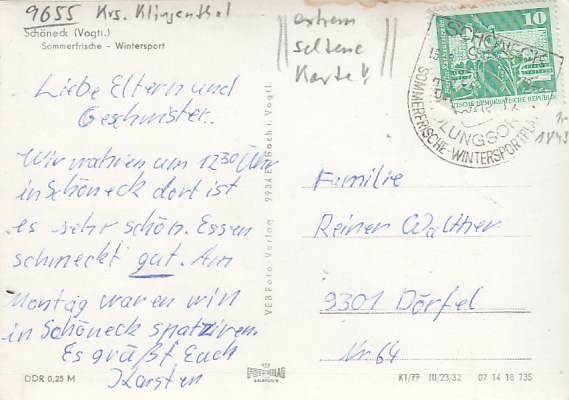 9655 Krs. Klingenthal
Schöneck (Vogtl.)
Sommerfrische - Wintersport
extrem
seltene
Karte!
10
DEUTSCHE DEMOKRATISCHE REPUBLIK
SCHÖNECK
SOMMERFRISCHE-WINTERSPORTPL
1843
Liebe Eltern und
Geschwister.
Wir wahren um 12 30 Uhr
in Schöneck dort ist
es sehr schön. Essen
schmeckt gut. Am
Montag waren win
in Schöneck spatziren.
Es grüßt Euch
Karsten
VEB Foto-Verlag 9934 Erlbach i. Vogtl.
Familie
Reiner Walther
9301 Dörfel
Nr. 64
DDR 0,25 M
K1/77 III/23/32 07 14 18 735